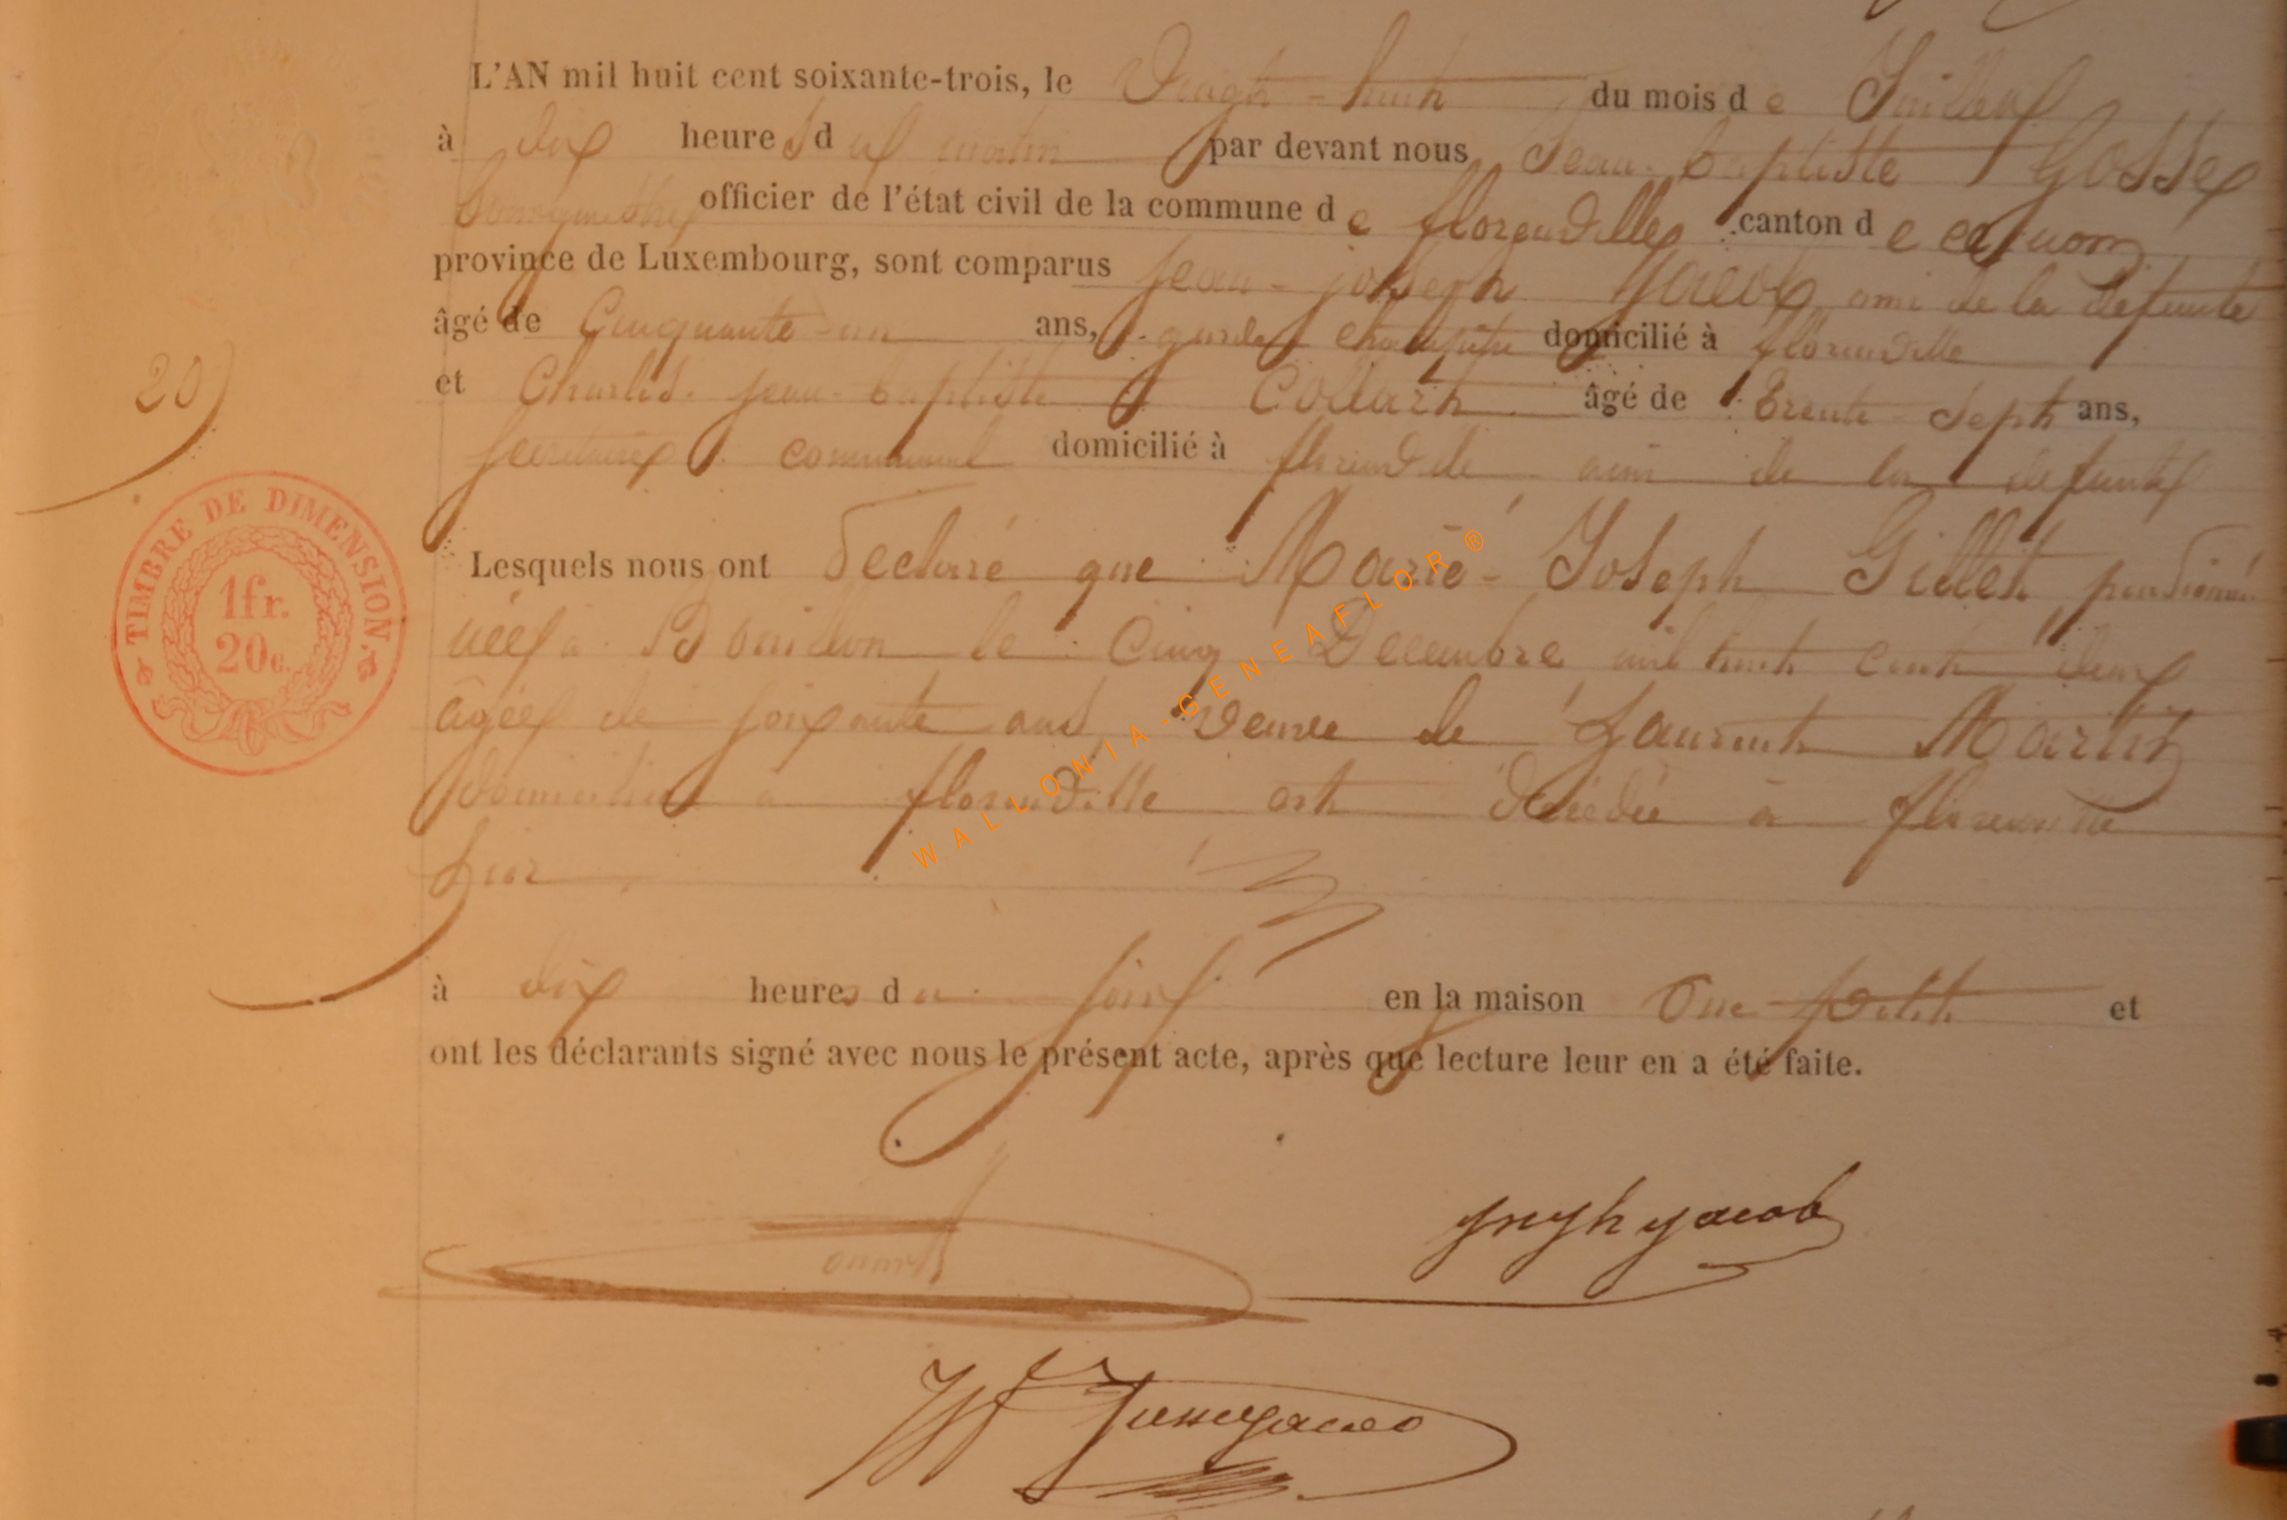 L'AN mil huit cent soixante-trois, le Vingt-huit du mois de Juillet
à dix heures du matin par devant nous Jean-Baptiste Gosse
Bourgmestre officier de l'état civil de la commune de florenville canton de ce nom
province de Luxembourg, sont comparus Jean-joseph Jacob ami de la defunte
âgé de Cinquante-un ans, garde champêtre domicilié à florenville
et Charles-jean-baptiste Collart âgé de trente-sept ans,
secretaire communal domicilié à florenville ami de la defunte
20)
Lesquels nous ont declaré que Marie-Joseph Gillet pensionnée
née à Bouillon le Cinq Decembre mil huit cent deux
âgée de soixante ans veuve de Laurent Martin
domiciliée à florenville est décédée à florenville
hier
à dix heures du soir en la maison rue petite et
ont les déclarants signé avec nous le présent acte, après que lecture leur en a été faite.
joseph jacob
TIMBRE DE DIMENSION.
1fr.
20c.
WALLONIA-GENEAFLOR®